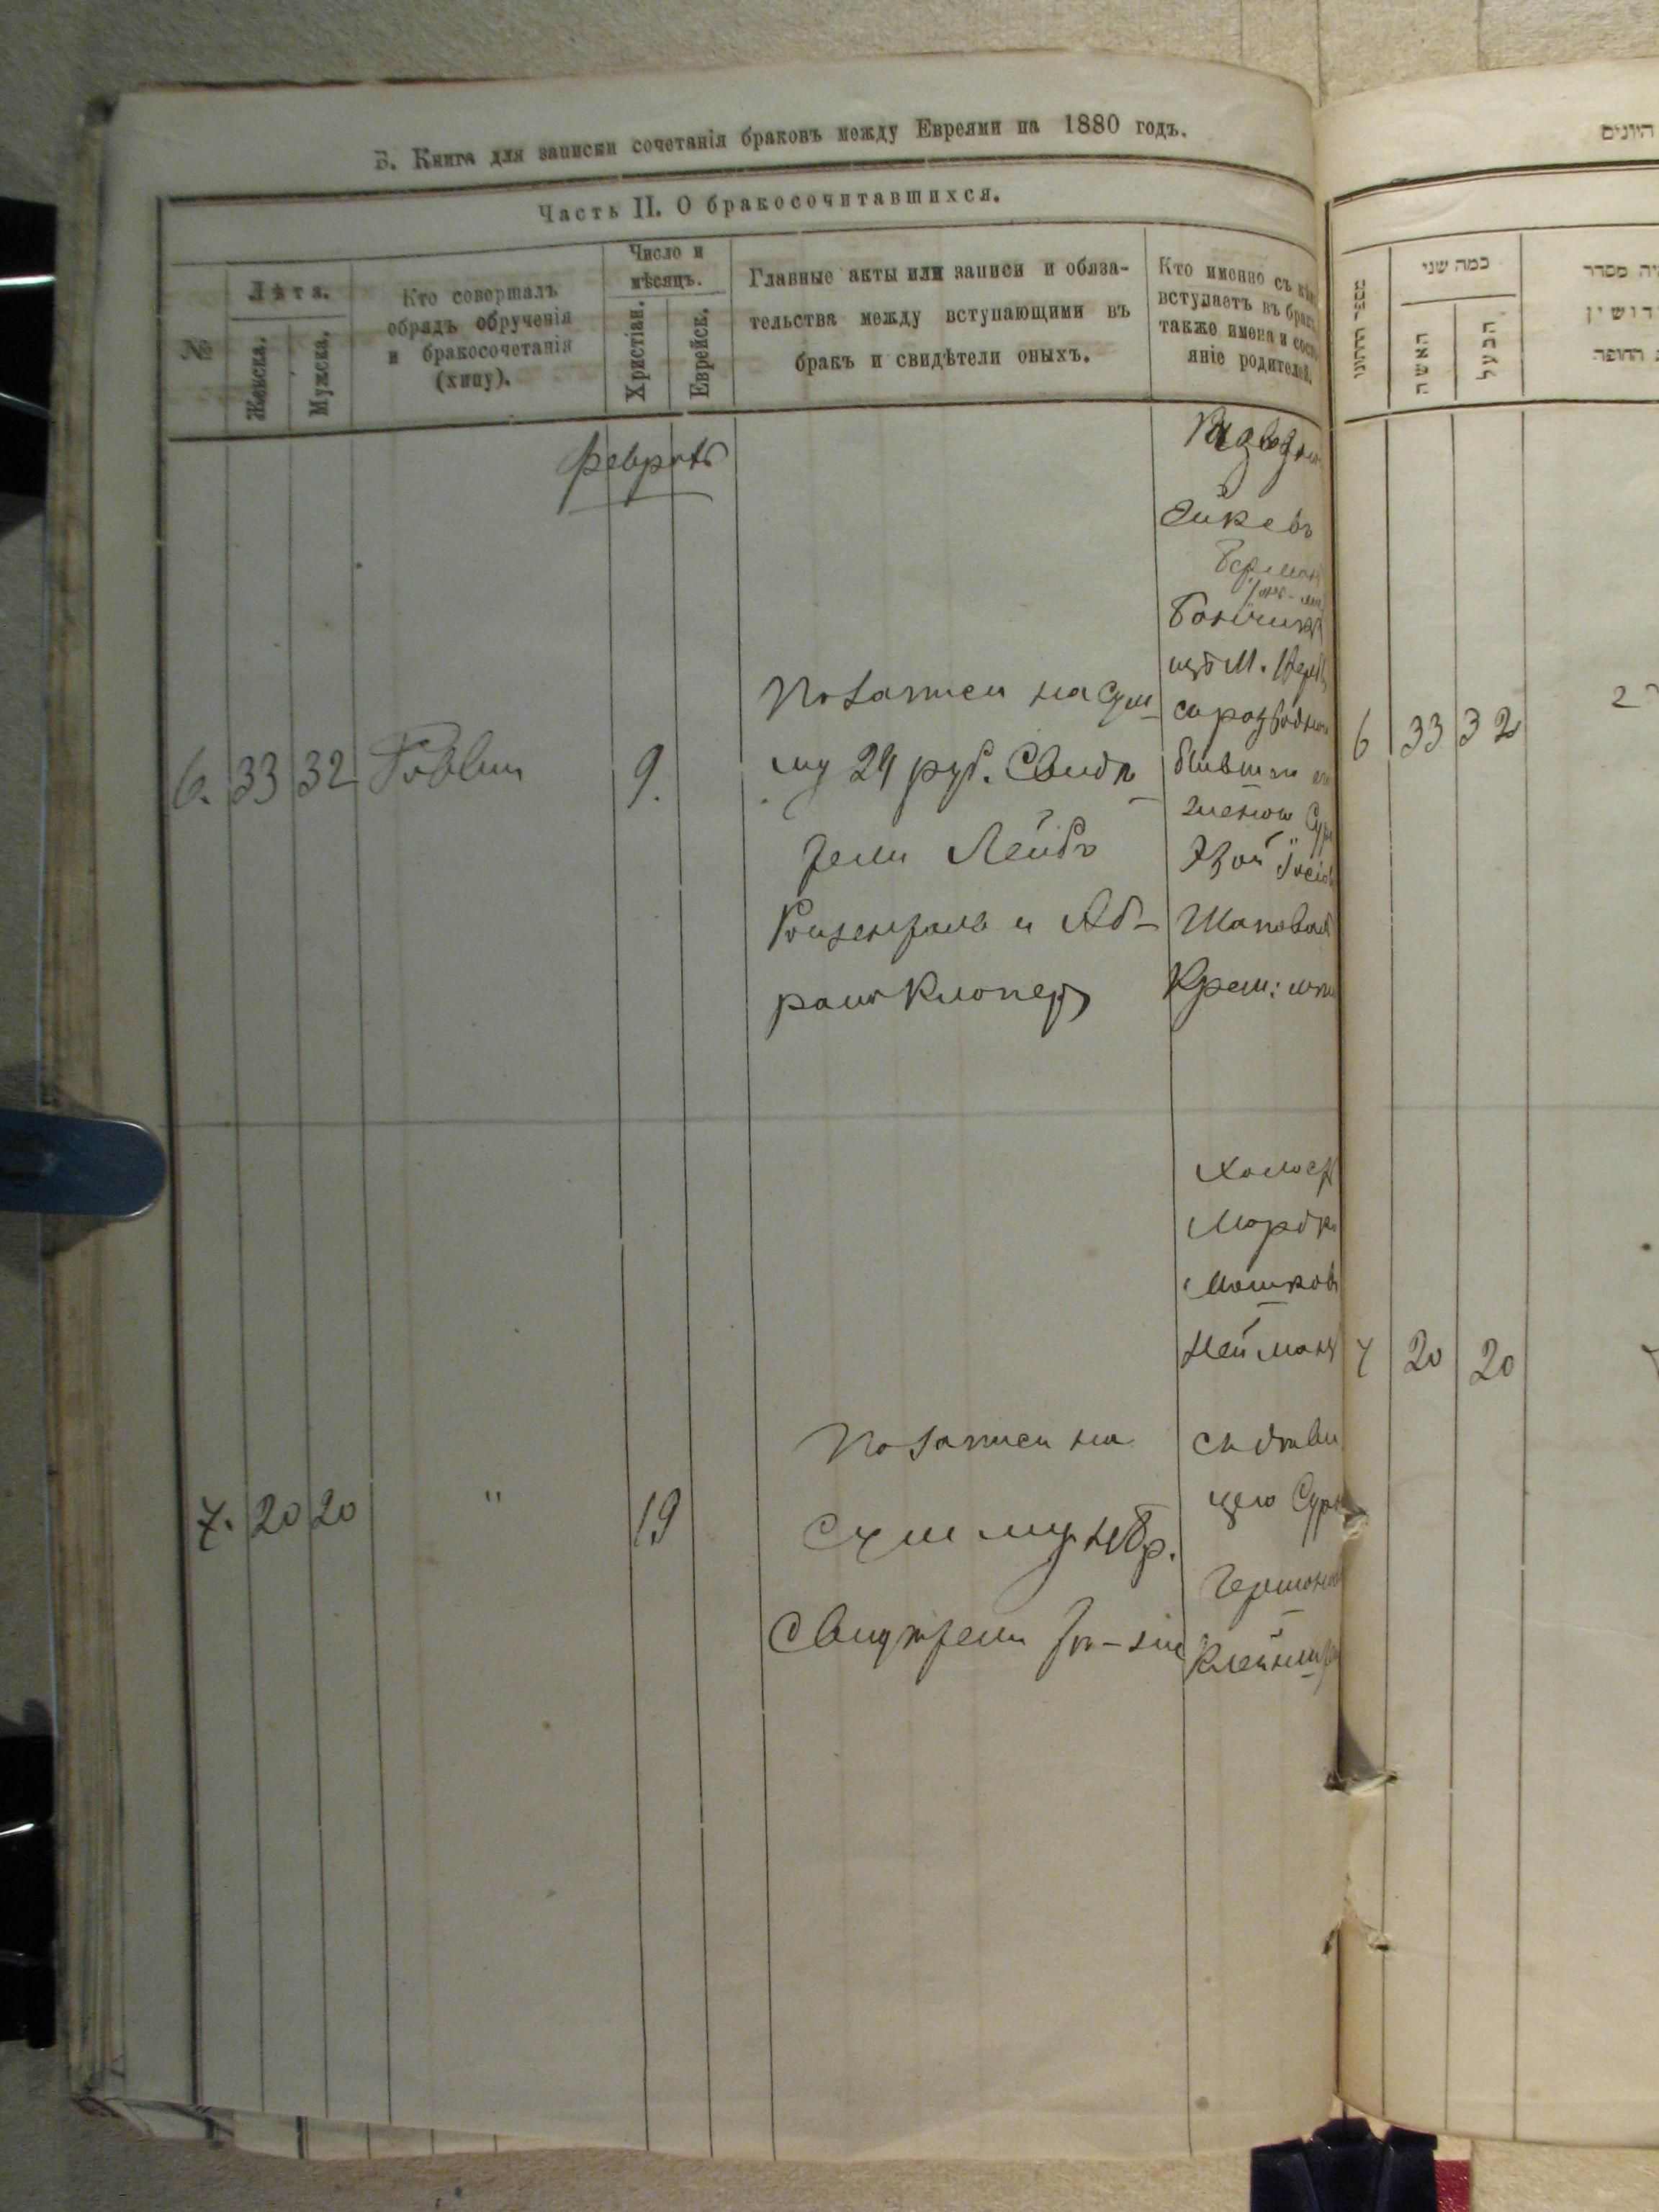 В. Книга для записки сочетанія браковъ между Евреями на 1880 годъ.
Часть II. О бракосочитавшихся.
№
Лѣта.
Женска.
Мужска.
Кто совершалъ
обрядъ обрученія
и бракосочетанія
(хипу).
Число и
мѣсяцъ.
Христіан.
Еврейск.
Главные акты или записи и обяза-
тельства между вступающими въ
бракъ и свидѣтели оныхъ.
Кто именно съ кѣмъ
вступаетъ въ бракъ
также имена и состо
яніе родителей.
Февраль
6. 33 32 Раввин 9.
По записи на сум
му 24 руб. Свидѣ
тели Лейбъ
Розенталь и Аб-
рамъ
Берман
изъ М.
бывшею
Іосіов
Шаповал
Крем:
7. 20 20 " 19
По записи на
сумму
Свидѣтели тѣ-же
Холост
Мордко
Мошков
Нейман
съ дѣви
цею Сур
Гершонов
היונים
מספר החתונו
כמה שני
האשה
הבעל
יה מסדר
דושין
החופה
6 33 32
7 20 20